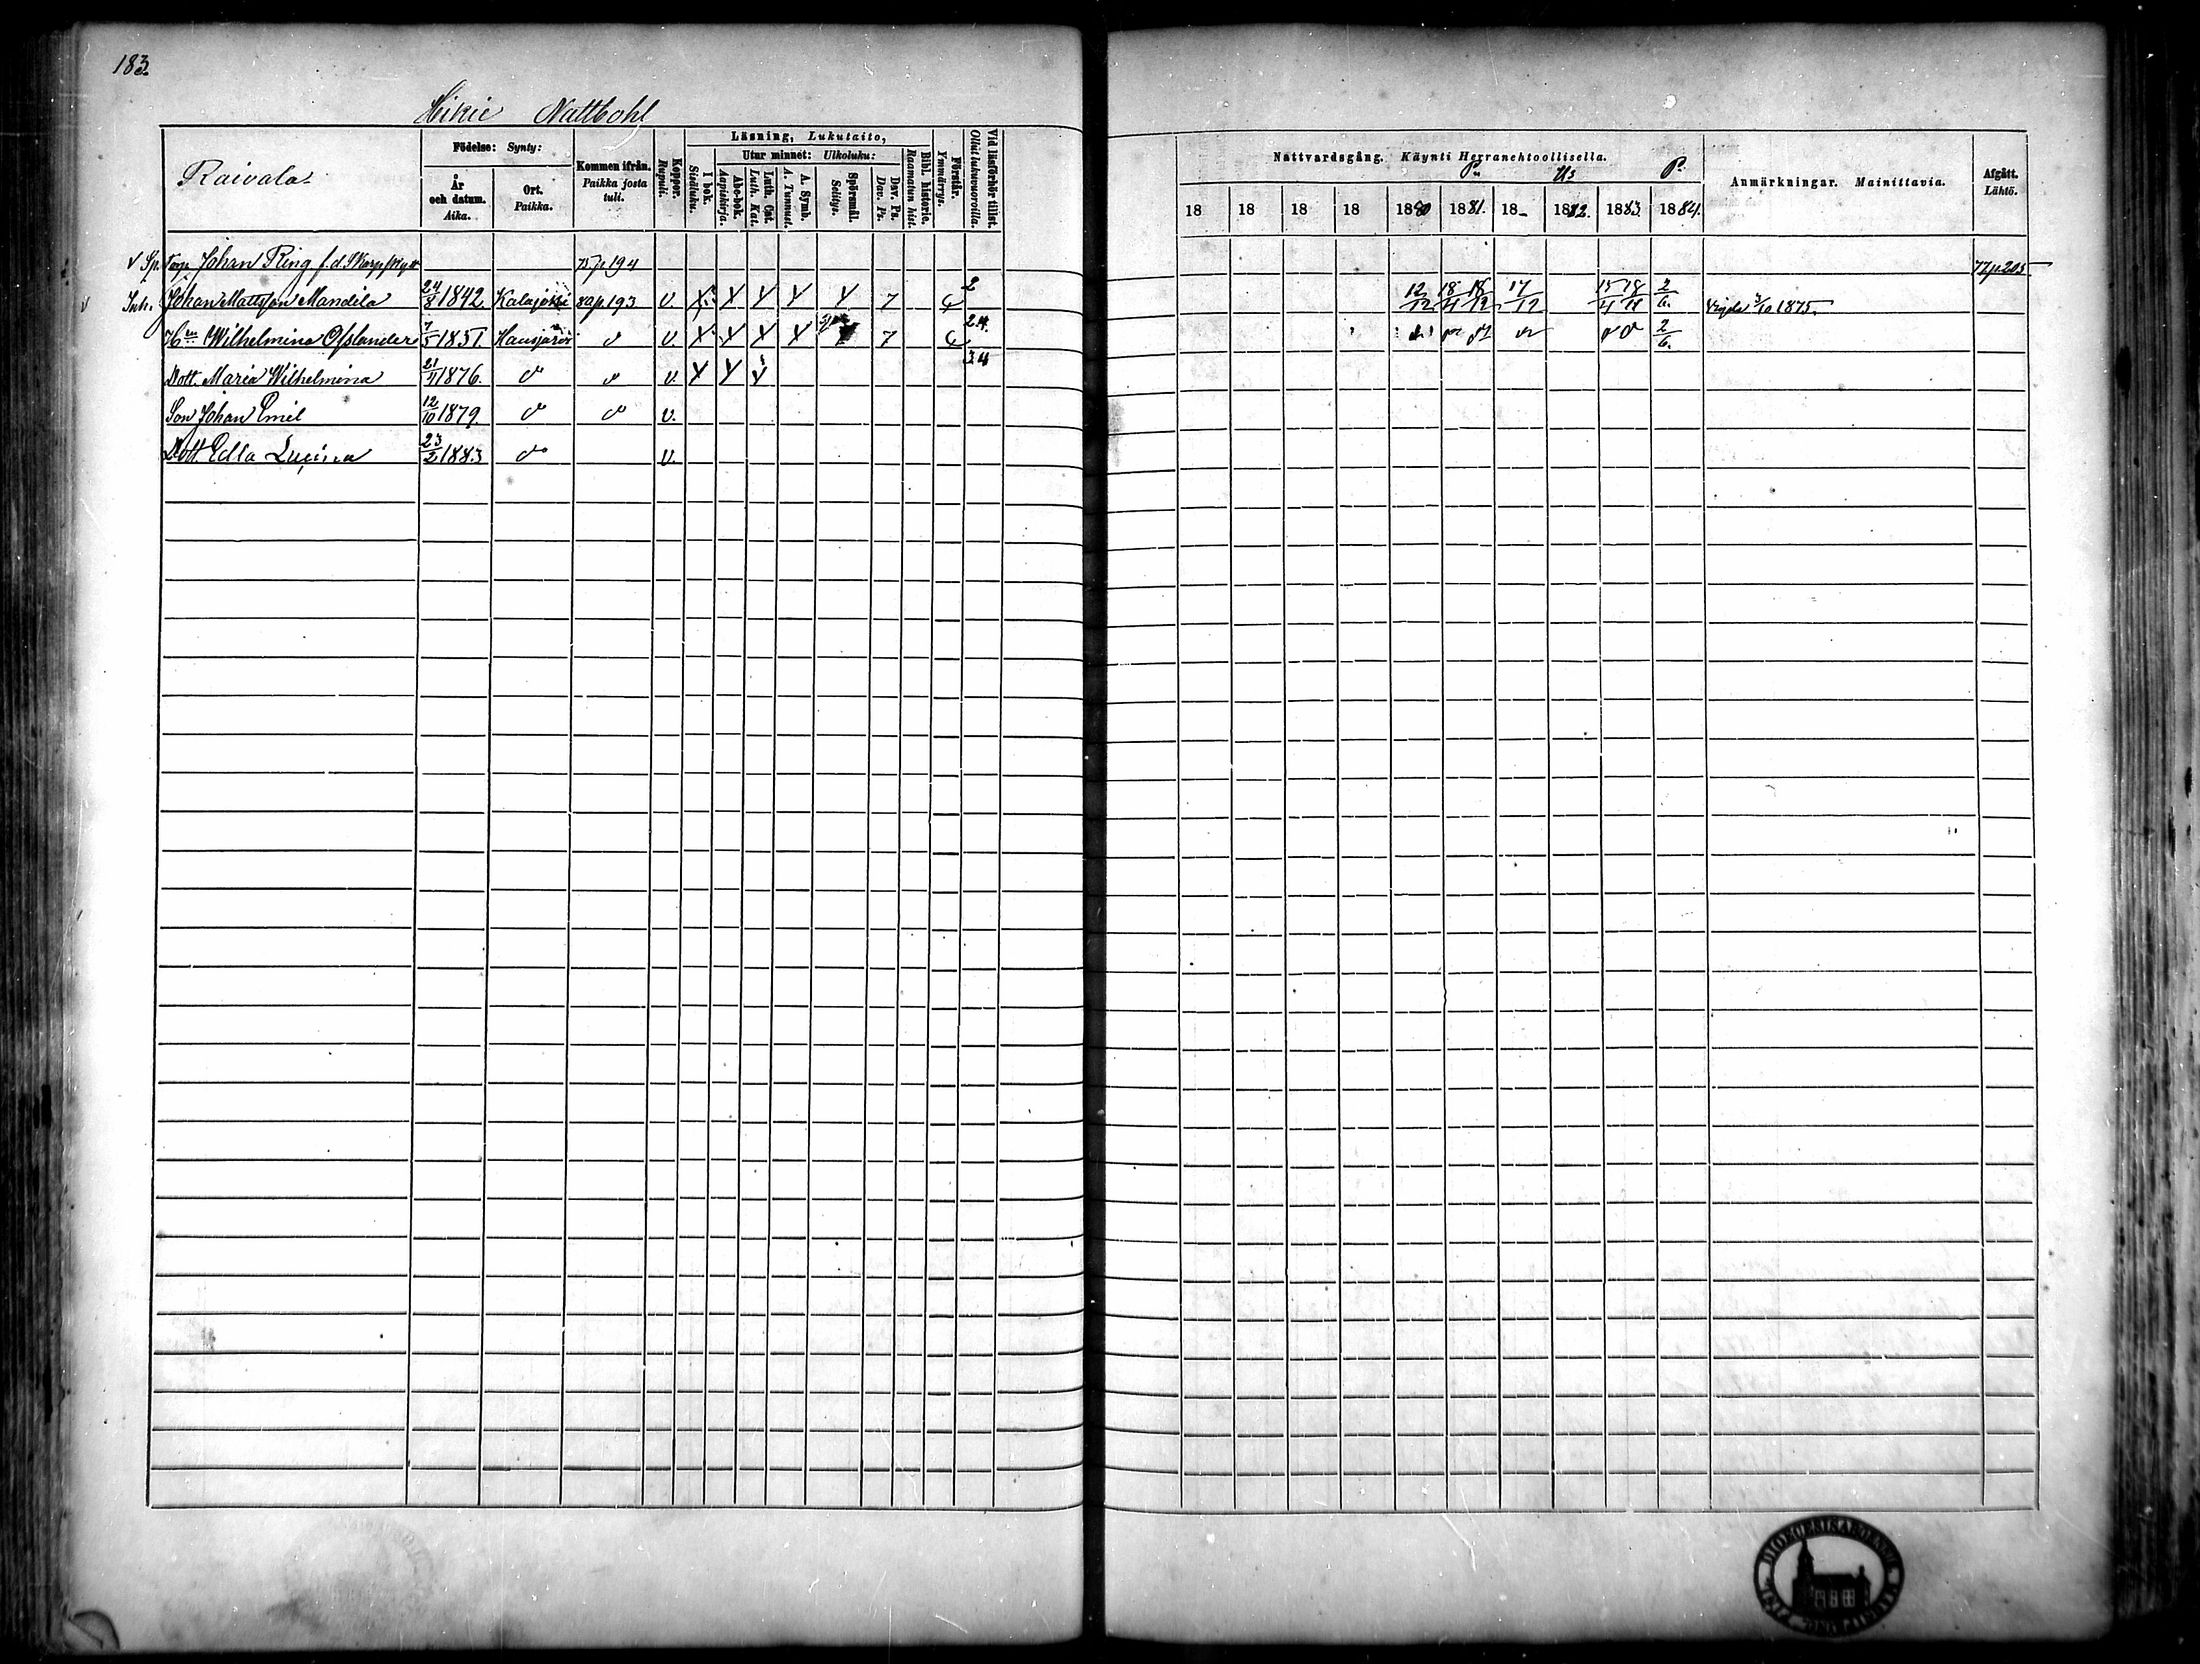 183.
Hikie Nattbohl
Raivala
Födelse: Synty:
År och datum. Aika.
Ort. Paikka.
Kommen ifrån. Paikka josta tuli.
Koppor. Rupuli.
Läsning, Lukutaito,
I bok. Sisäluku.
Utur minnet: Ulkoluku:
Abc-bok. Aapiskirja.
Luth. Cat. Luth. Kat.
A. Symb. A. Tunnust.
Spörsmål. Selitys.
Dav. Ps. Dav. Ps.
Bibl. historie. Raamatun hist.
Förstår. Ymmärrys.
Vid läsförhör tillst. Ollut lukuvuoroilla.
Nattvardsgång. Käynti Herranehtoollisella.
18 18 18 18 1880 1881. 18 1882. 1883. 1884.
Anmärkningar. Mainittavia.
Afgått. Lähtö.
v Sp. Torp. Johan Ring f.d. 75 p 194 77 p 205
v Inh. Johan Mattsson Mandela 24/8 1842 Kalajoki 80 p 193 v. 7 2 12/12 18/4 18/12 17/12 15/4 2/6. Vigda 3/10 1875.
Hu Wilhelmina 7/5 1851. Hausjärvi v. 7 2.4. 2/6.
Dott. Maria Wilhelmina 21/4 1876. v. 3 4
Son Johan Emil 12/10 1879. v.
Dott. Edla Lucina 23/2 1883 v.